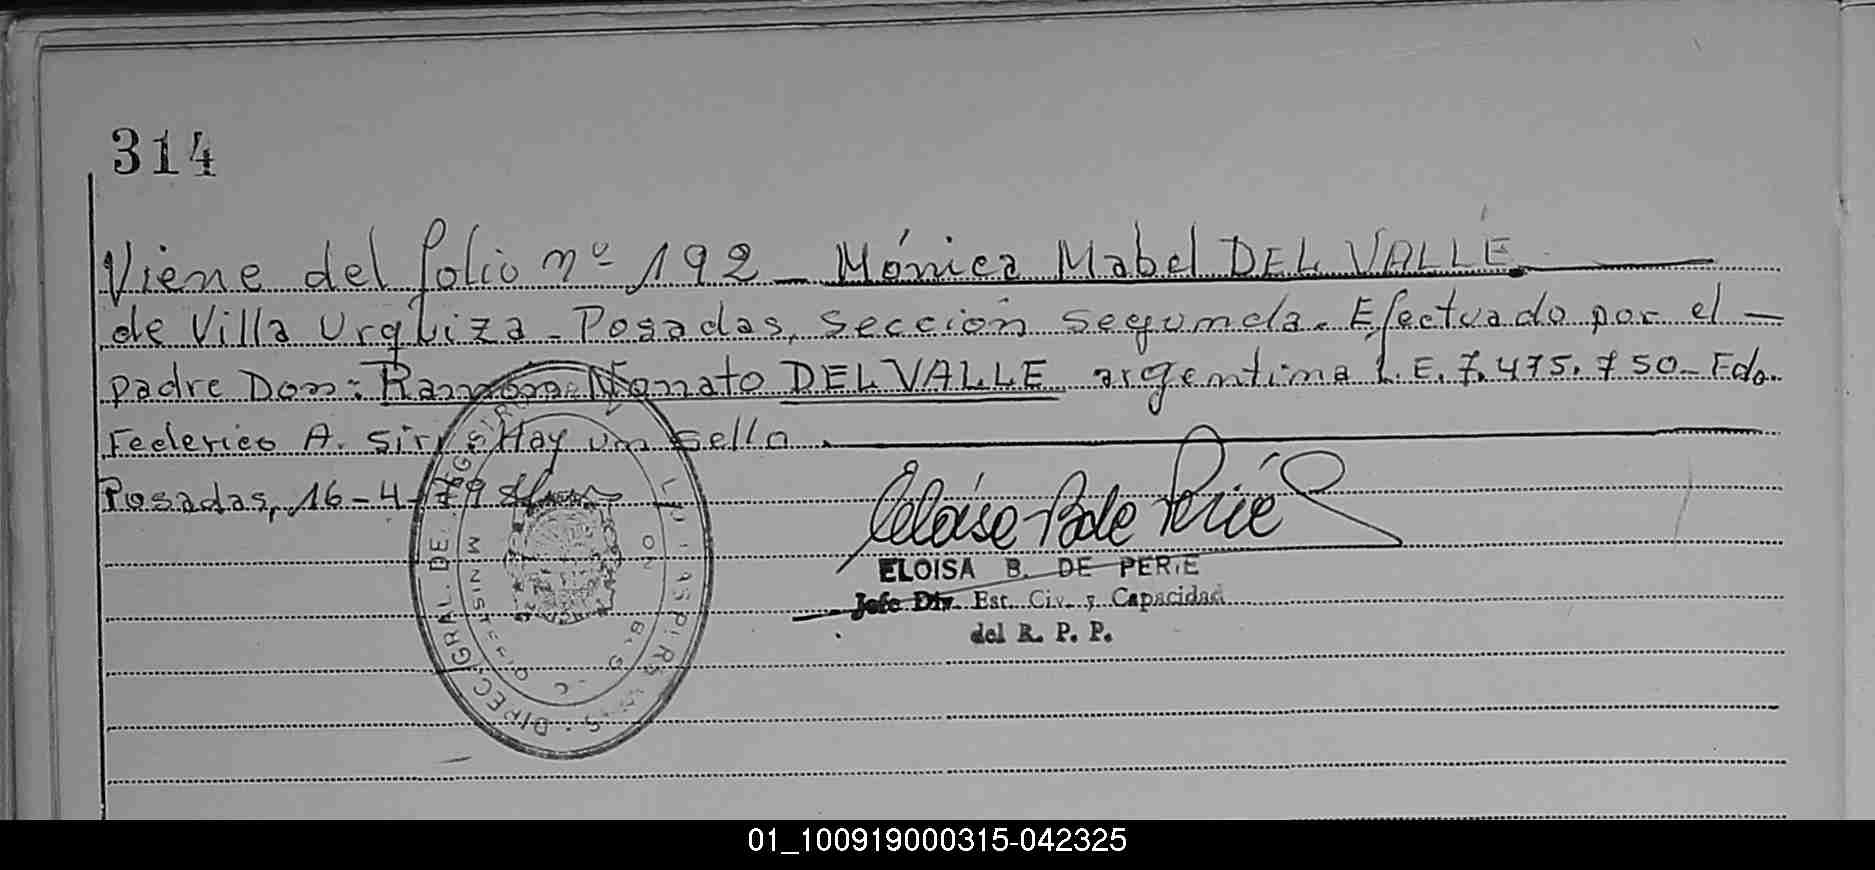 314
Viene del folio nº 192 - Mónica Mabel DEL VALLE
de Villa Urquiza - Posadas, Sección Segunda. Efectuado por el -
padre Don: Ramón Nonnato DEL VALLE argentina L.E. 7.475.750 - Fdo.
Federico A. Siri Hay un sello.
Posadas, 16-4-79
ELOISA B. DE PERIE
Jefe Div. Est. Civ. y Capacidad
del R. P. P.
01_100919000315-042325